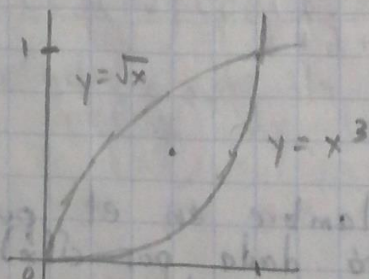 1
y=√x
y = x³
0